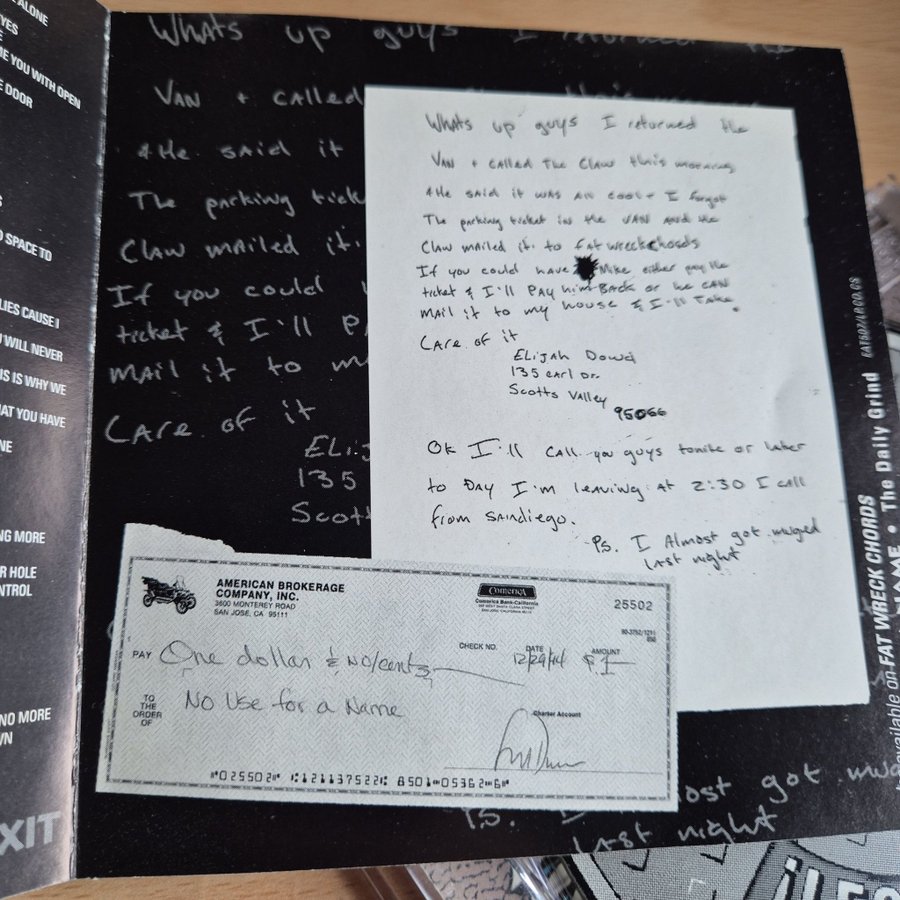 ALONE
YES
ME YOU WITH OPEN
DOOR
S
SPACE TO
LIES CAUSE I
WILL NEVER
IS IS WHY WE
AT YOU HAVE
NE
NG MORE
HOLE
NTROL
NO MORE
WN
XIT
Whats up guys I returned the
VAN + called
+He said it
The parking tick
Claw mailed it.
If you could
ticket & I'll PA
mail it to m
Care of it
ELIJ
135
Scott
Whats up guys I returned the
VAN + called The Claw this morning
+He said it was all cool + I forgot
The parking ticket in the VAN and the
Claw mailed it to fat wreckchords
If you could have Mike either pay the
ticket & I'll PAY him BACK or he CAN
mail it to my house & I'll Take
Care of it
Elijah Dowd
135 earl Dr.
Scotts Valley
95066
Ok I'll CALL you guys tonite or later
to DAY I'm leaving at 2:30 I call
from SAndiego.
Ps. I Almost got muged
last night
AMERICAN BROKERAGE
COMPANY, INC.
3600 MONTEREY ROAD
SAN JOSE, CA 95111
Comerica
Comerica Bank-California
25502
CHECK NO.
DATE
AMOUNT
PAY One dollar & No/cents
12/29/94 $1
TO
THE
ORDER
OF
No Use for a Name
Charter Account
⑈025502⑈ ⑆121137522⑆ 8501⑉05362⑉6⑈
P.S. I
ost got mug
last night
available on FAT WRECK CHORDS
NAME • The Daily Grind FAT507/LP.CD.CS